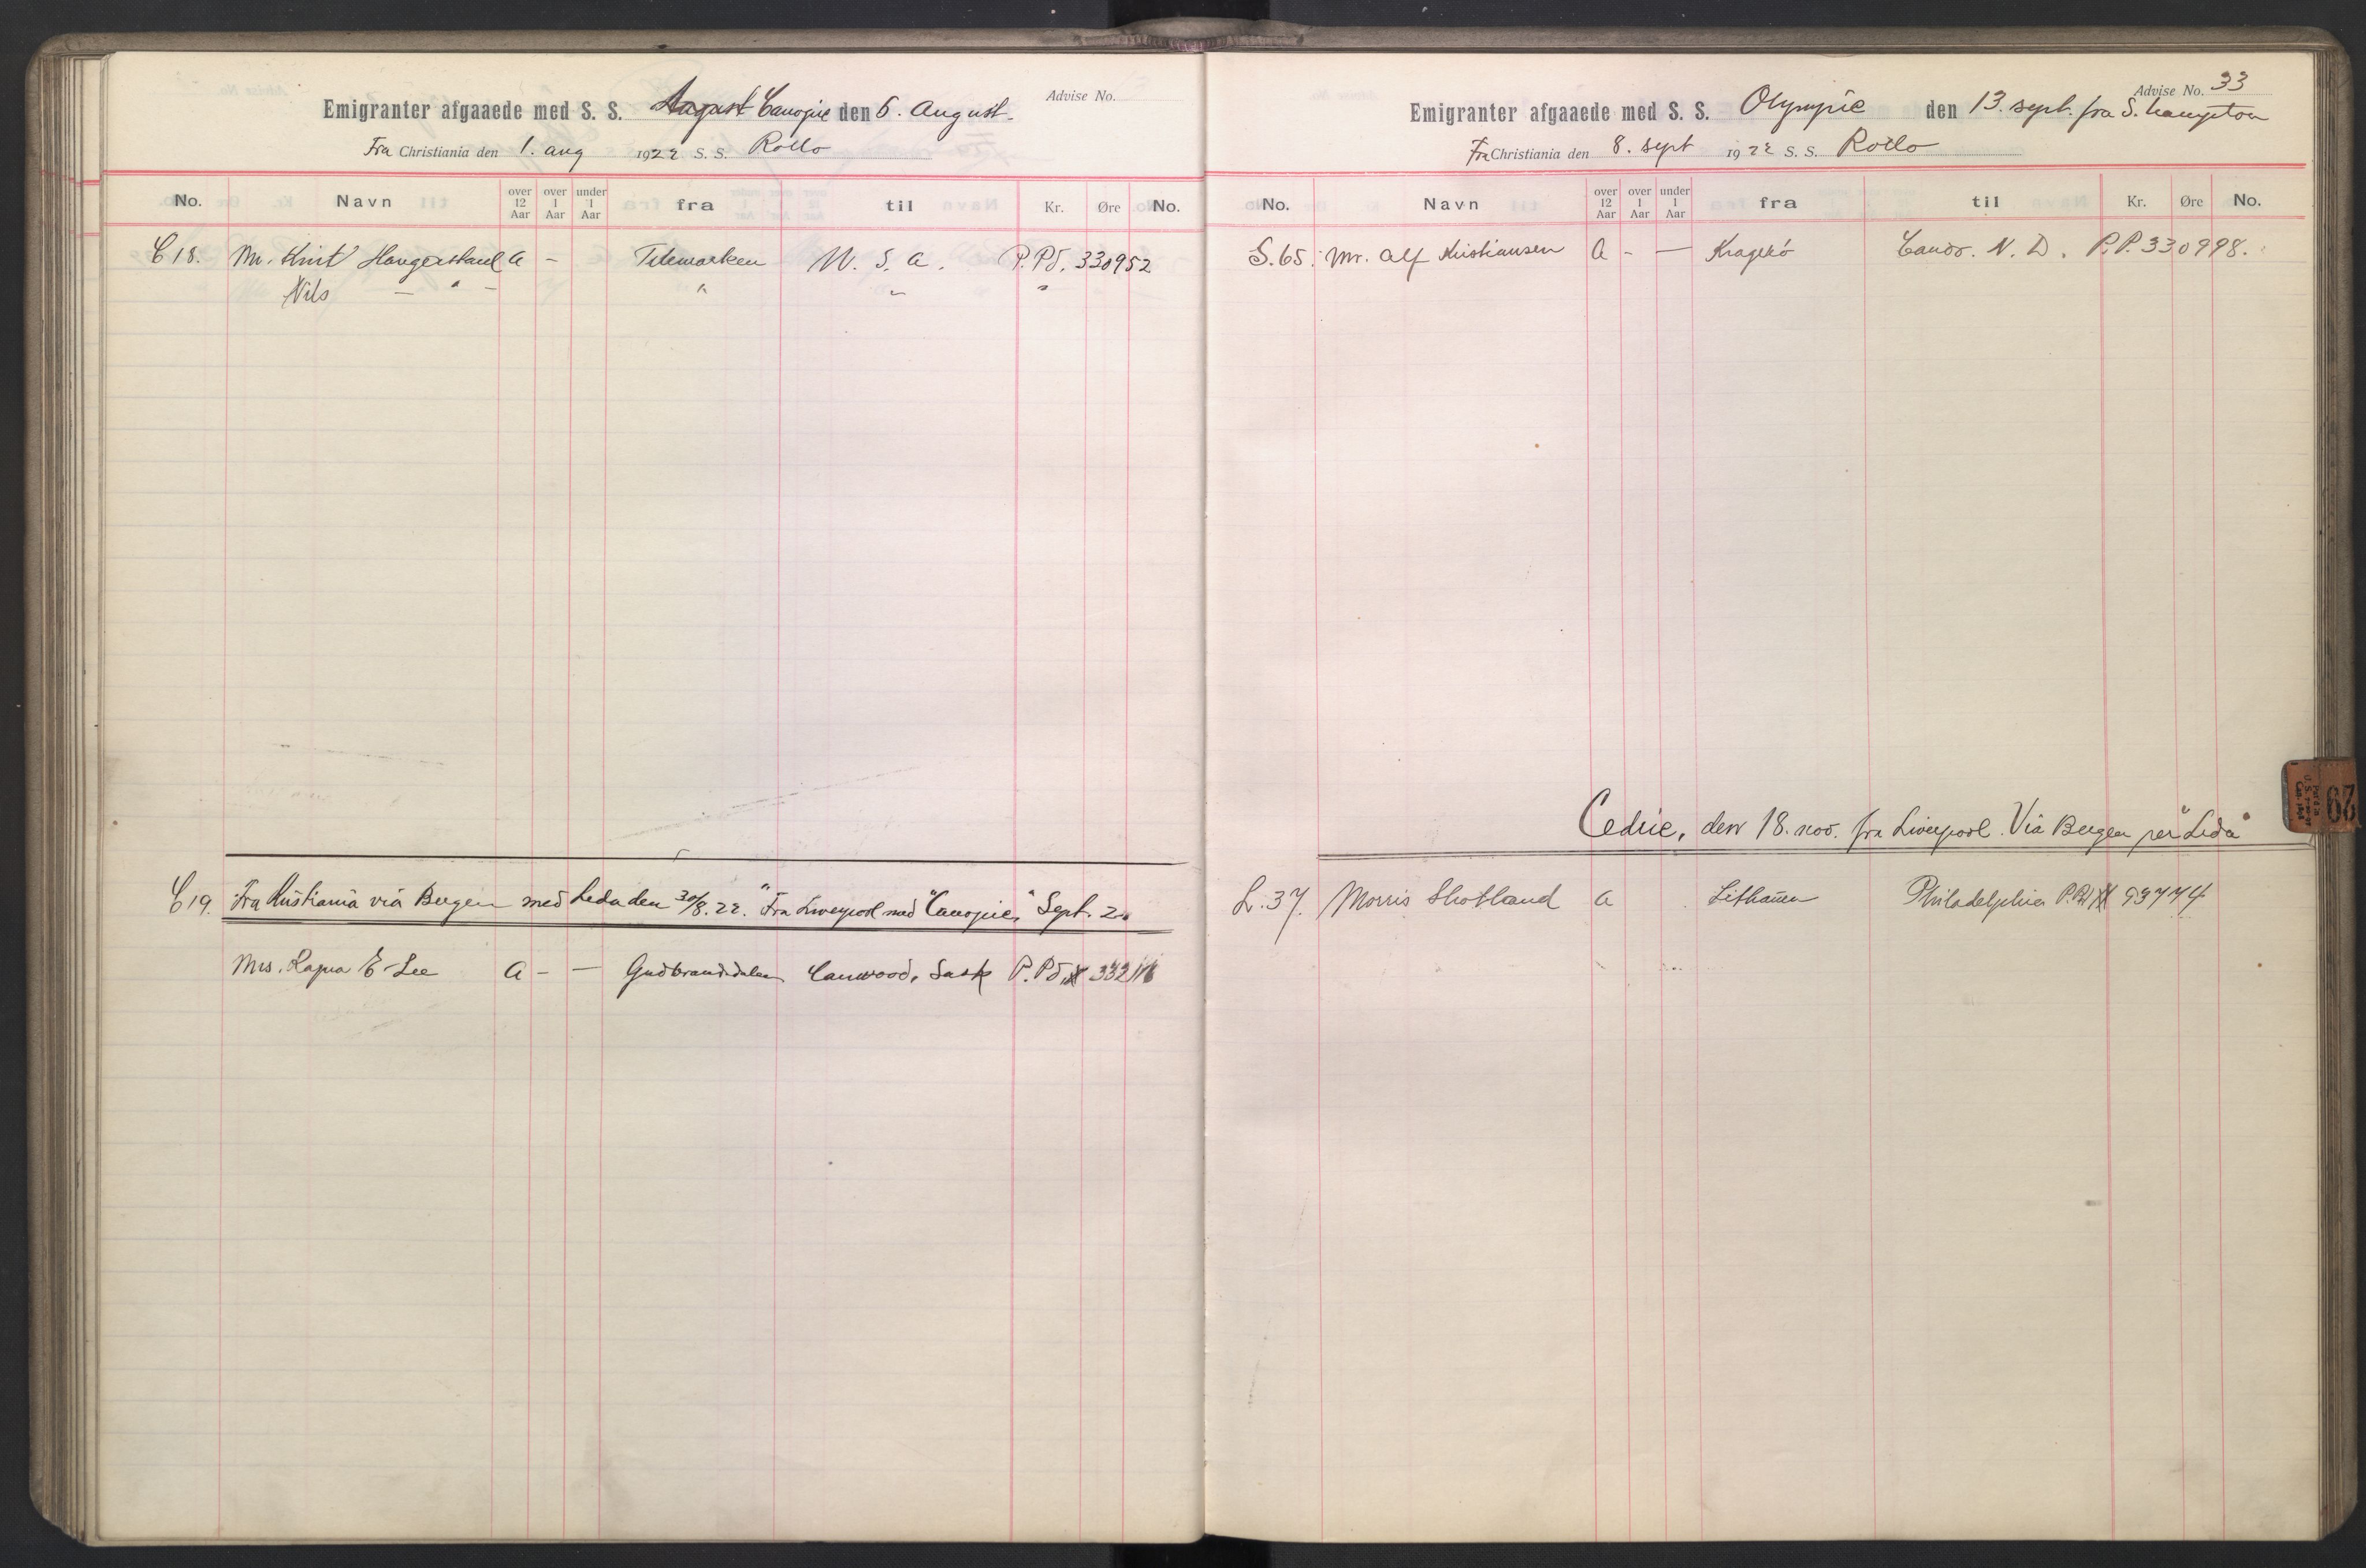 Advise No.
Emigranter afgaaede med S. S. August Canopic den 6. August.
Fra Christiania den 1. aug 1922 S. S. Rollo
No. Navn over 12 Aar over 1 Aar under 1 Aar fra til Kr. Øre No.
C 18. Mr. Knut Haugerstaul a - Telemarken U. S. a. P.Pd. 330952
Nils — " — " " "
C 19. Fra Kristiania via Bergen med Leda den 30/8. 22. Fra Liverpool med "Canopic" Sept. 2
Mrs. E Lee a - — Gudbrandsdalen Canwood, Sask P. Pd.
Advise No. 33
Emigranter afgaaede med S. S. Olympic den 13. sept. fra S. hampton
Fra Christiania den 8. sept 1922 S. S. Rollo
No. Navn over 12 Aar over 1 Aar under 1 Aar fra til Kr. Øre No.
S. 65. Mr. Alf Kristiansen a - — Kragerö Cando. N. D. P.P. 330998.
Cedric, den 18. nov. fra Liverpool. Via Bergen per "Leda"
L. 37. Morris Shotland a Lithauen Philadelphia 93774
29